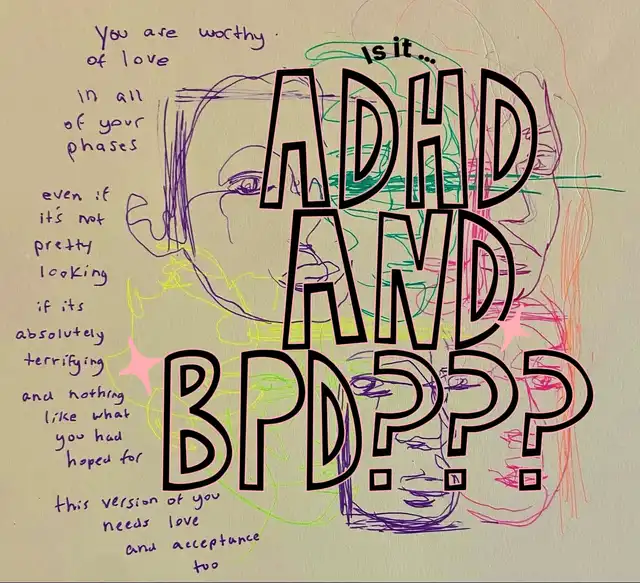 You are worthy
of love
in all
of your
phases
even if
it's not
pretty
looking
if its
absolutely
terrifying
and nothing
like what
you had
hoped for
this version of you
needs love
and acceptance
too
Is it...
ADHD
AND
BPD???